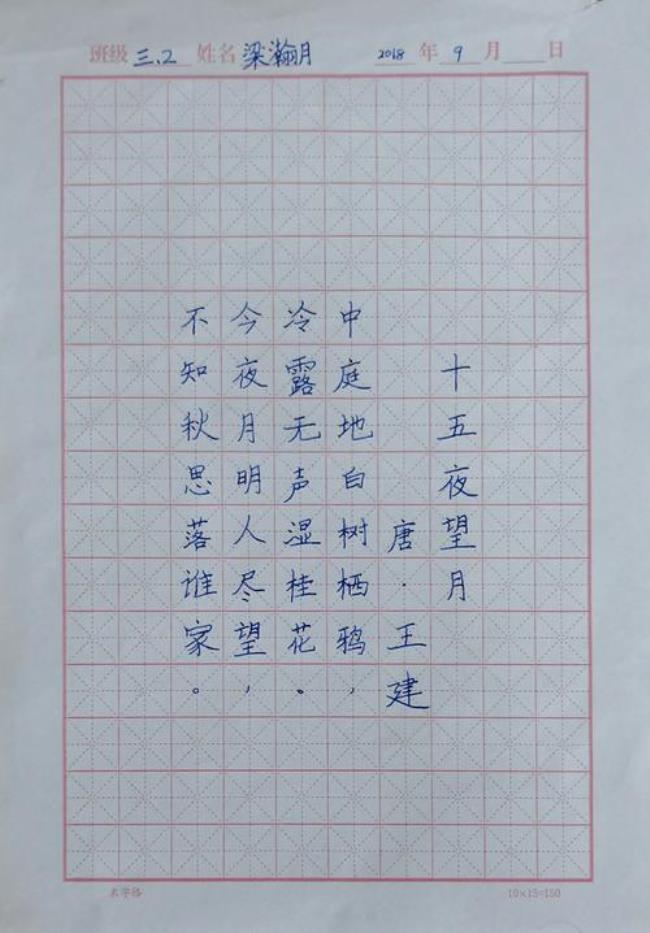 班级三.2 姓名梁瀚月 2018年9月 日
十五夜望月
唐·王建
中庭地白树栖鸦，
冷露无声湿桂花。
今夜月明人尽望，
不知秋思落谁家。
米字格 10×15=150